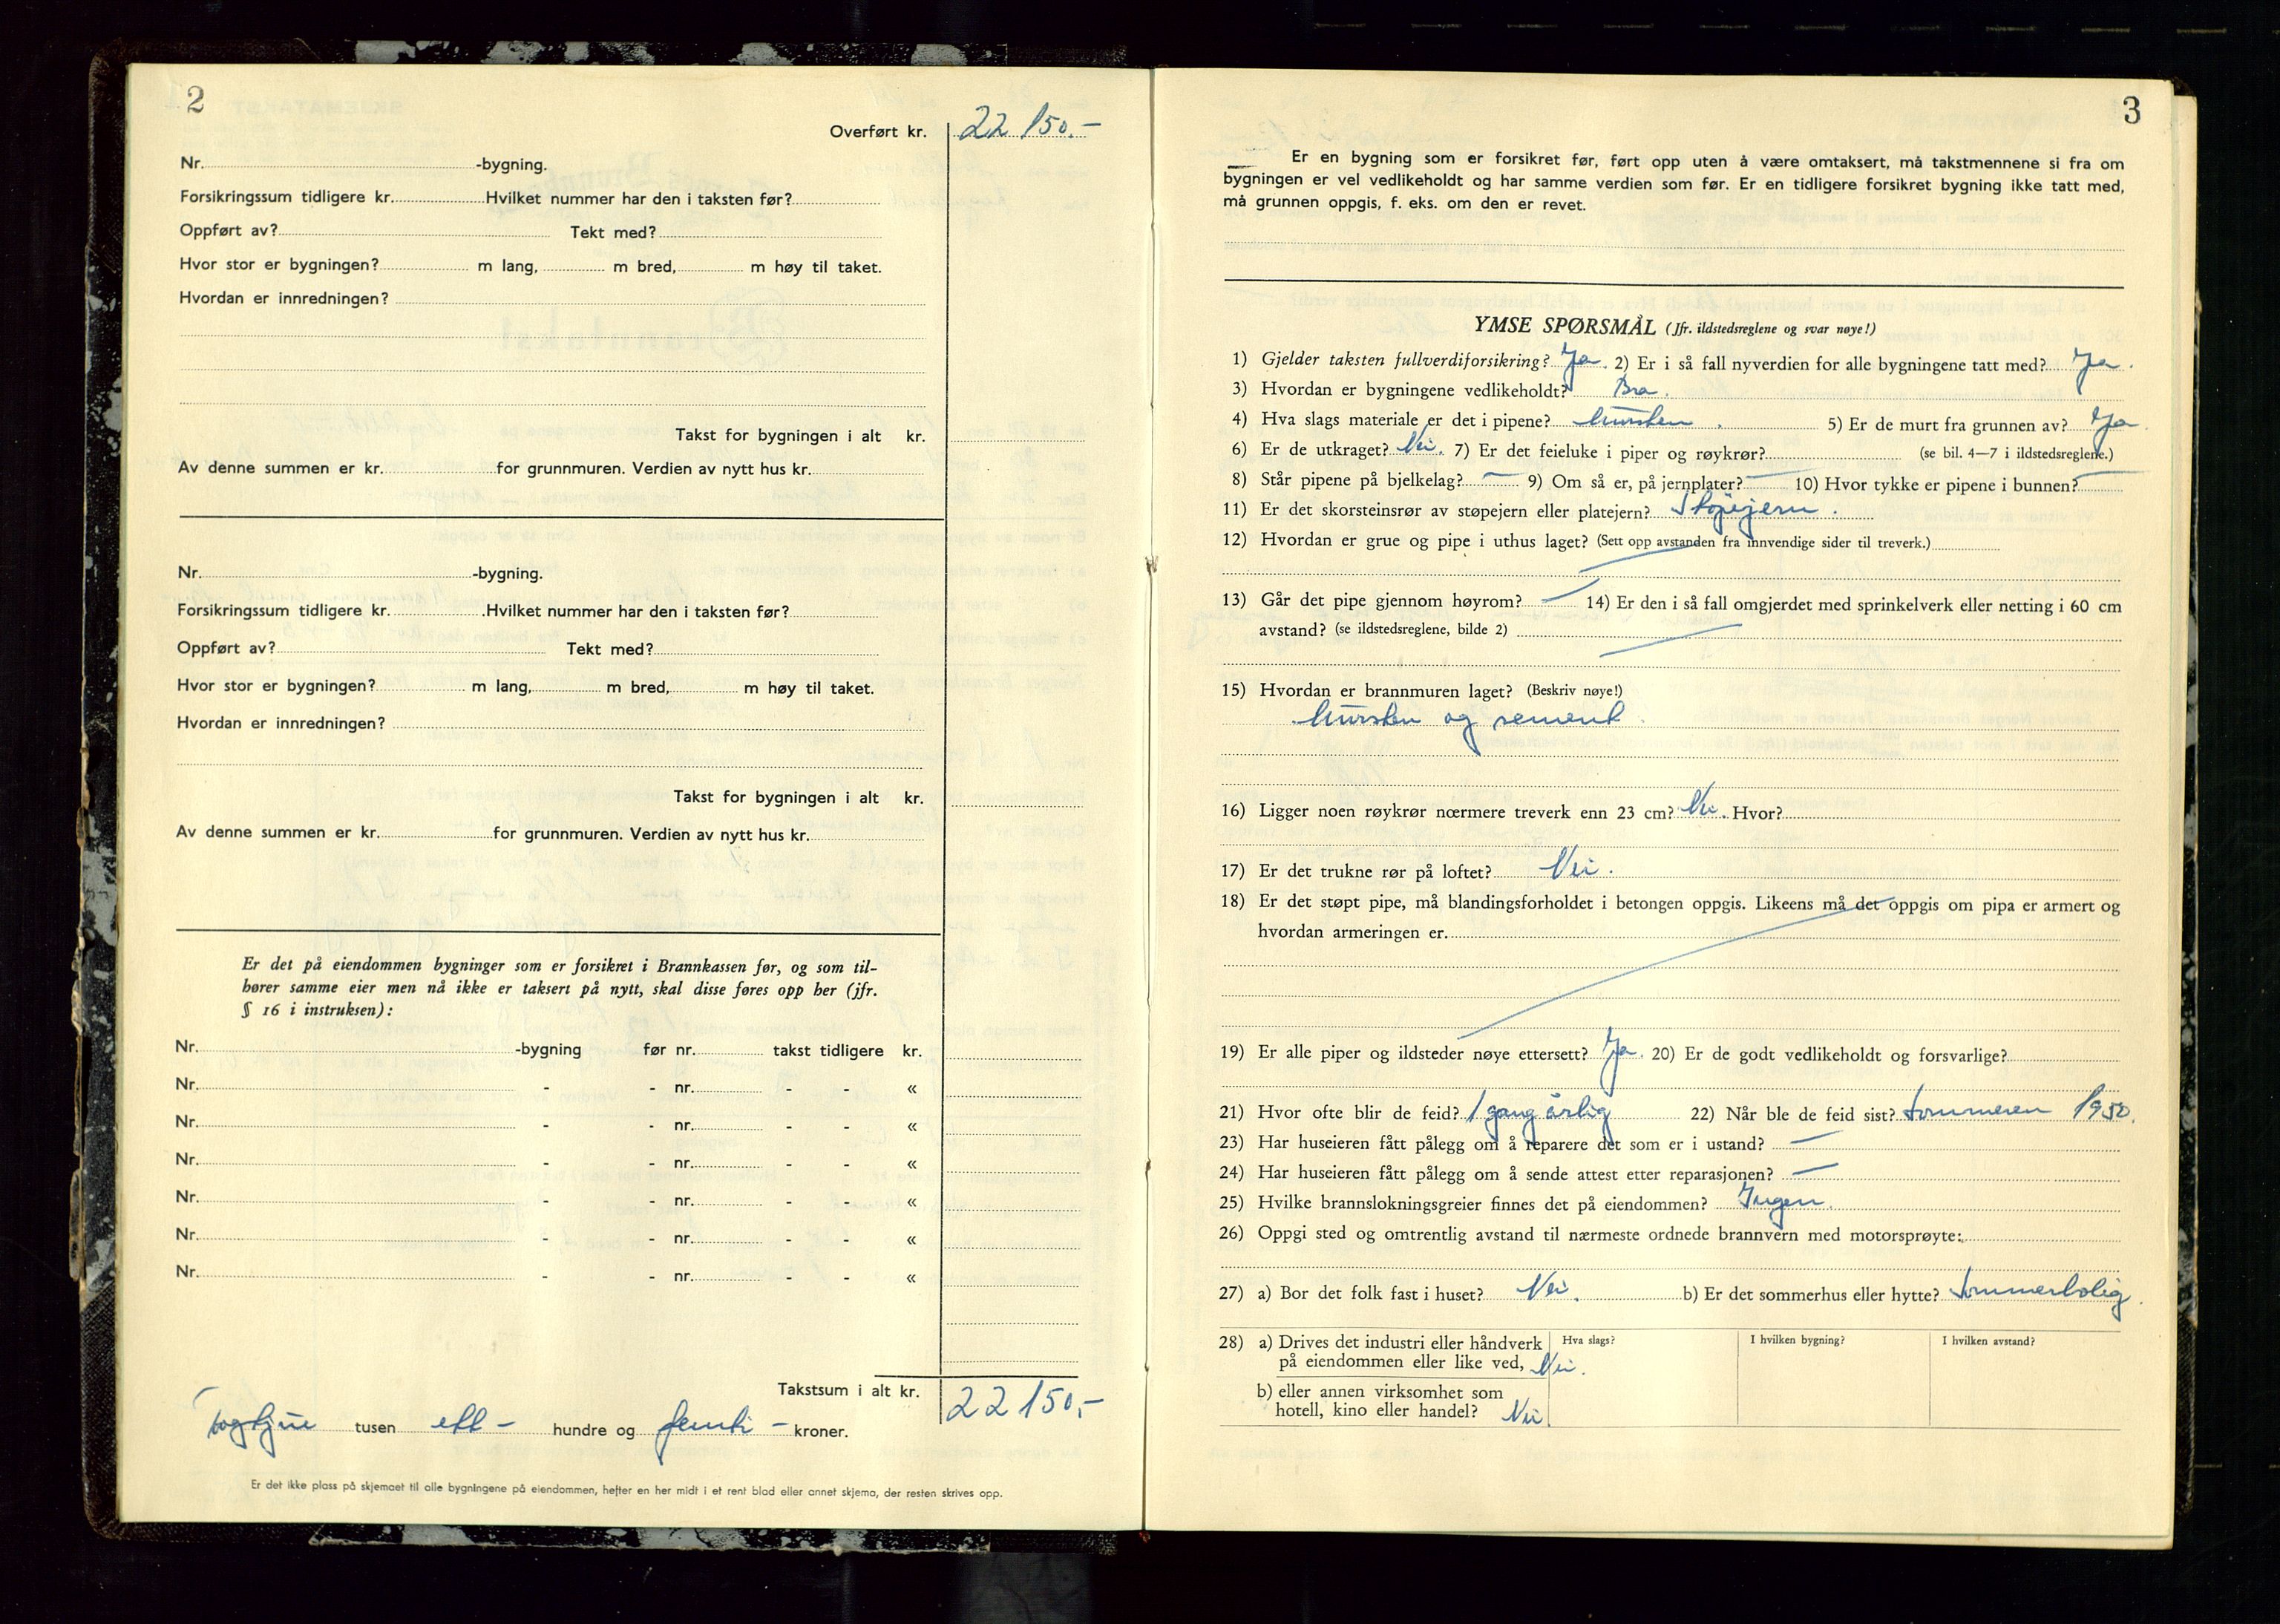 2
Overført kr. 22 150.-
Nr. -bygning.
Forsikringssum tidligere kr. Hvilket nummer har den i taksten før?
Oppført av? Tekt med?
Hvor stor er bygningen? m lang, m bred, m høy til taket.
Hvordan er innredningen?
Takst for bygningen i alt kr.
Av denne summen er kr. for grunnmuren. Verdien av nytt hus kr.
Nr. -bygning.
Forsikringssum tidligere kr. Hvilket nummer har den i taksten før?
Oppført av? Tekt med?
Hvor stor er bygningen? m lang, m bred, m høy til taket.
Hvordan er innredningen?
Takst for bygningen i alt kr.
Av denne summen er kr. for grunnmuren. Verdien av nytt hus kr.
Er det på eiendommen bygninger som er forsikret i Brannkassen før, og som til-
hører samme eier men nå ikke er taksert på nytt, skal disse føres opp her (jfr.
§ 16 i instruksen):
Nr. -bygning før nr. takst tidligere kr.
Nr. - - nr. - - «
Nr. - - nr. - - «
Nr. - - nr. - - «
Nr. - - nr. - - «
Nr. - - nr. - - «
Nr. - - nr. - - «
Takstsum i alt kr. 22 150,-
togtjue tusen ett - hundre og femti - kroner.
Er det ikke plass på skjemaet til alle bygningene på eiendommen, hefter en her midt i et rent blad eller annet skjema, der resten skrives opp.
3
Er en bygning som er forsikret før, ført opp uten å være omtaksert, må takstmennene si fra om
bygningen er vel vedlikeholdt og har samme verdien som før. Er en tidligere forsikret bygning ikke tatt med,
må grunnen oppgis, f. eks. om den er revet.
YMSE SPØRSMÅL (Jfr. ildstedsreglene og svar nøye!)
1) Gjelder taksten fullverdiforsikring? Ja. 2) Er i så fall nyverdien for alle bygningene tatt med? Ja.
3) Hvordan er bygningene vedlikeholdt? Bra.
4) Hva slags materiale er det i pipene? Mursten. 5) Er de murt fra grunnen av? Ja.
6) Er de utkraget? Nei. 7) Er det feieluke i piper og røykrør? (se bil. 4—7 i ildstedsreglene.)
8) Står pipene på bjelkelag? — 9) Om så er, på jernplater? — 10) Hvor tykke er pipene i bunnen? —
11) Er det skorsteinsrør av støpejern eller platejern? Støpejern.
12) Hvordan er grue og pipe i uthus laget? (Sett opp avstanden fra innvendige sider til treverk.)
13) Går det pipe gjennom høyrom? — 14) Er den i så fall omgjerdet med sprinkelverk eller netting i 60 cm
avstand? (se ildstedsreglene, bilde 2)
15) Hvordan er brannmuren laget? (Beskriv nøye!)
Mursten og sement.
16) Ligger noen røykrør nœrmere treverk enn 23 cm? Nei. Hvor?
17) Er det trukne rør på loftet? Nei.
18) Er det støpt pipe, må blandingsforholdet i betongen oppgis. Likeens må det oppgis om pipa er armert og
hvordan armeringen er.
19) Er alle piper og ildsteder nøye ettersett? Ja. 20) Er de godt vedlikeholdt og forsvarlige?
21) Hvor ofte blir de feid? 1 gang årlig 22) Når ble de feid sist? Sommeren 1950.
23) Har huseieren fått pålegg om å reparere det som er i ustand? —
24) Har huseieren fått pålegg om å sende attest etter reparasjonen? —
25) Hvilke brannslokningsgreier finnes det på eiendommen? Ingen.
26) Oppgi sted og omtrentlig avstand til nærmeste ordnede brannvern med motorsprøyte:
27) a) Bor det folk fast i huset? Nei. b) Er det sommerhus eller hytte? Sommerbolig.
28) a) Drives det industri eller håndverk Hva slags? I hvilken bygning? I hvilken avstand?
på eiendommen eller like ved, Nei.
b) eller annen virksomhet som
hotell, kino eller handel? Nei.